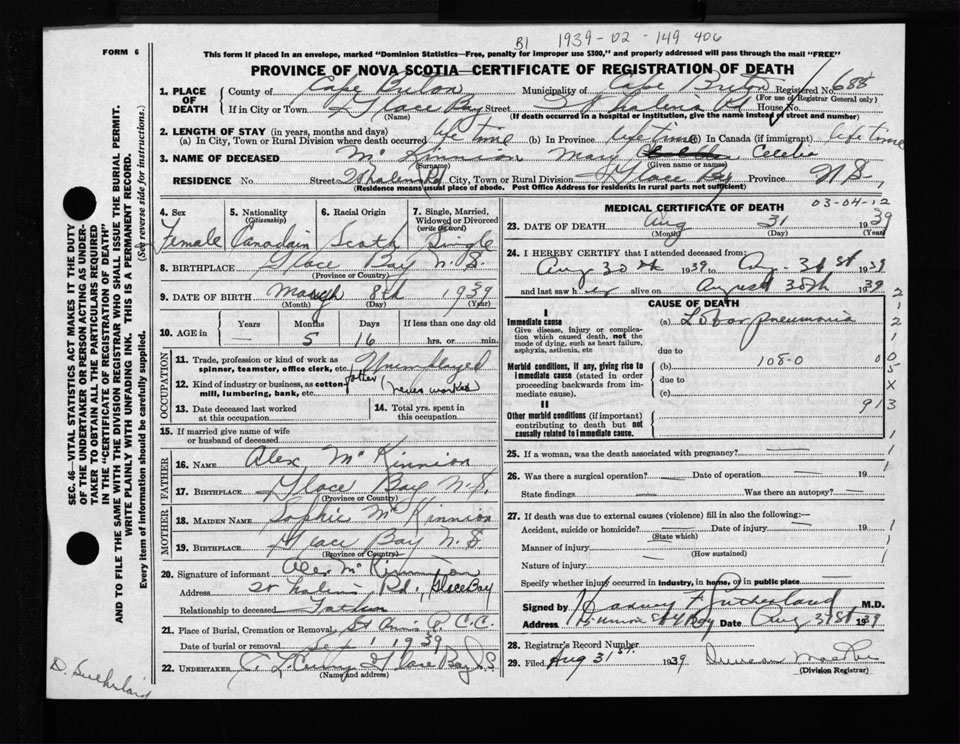 B1 1939-02-149 406
FORM 6
This form if placed in an envelope, marked "Dominion Statistics—Free, penalty for improper use $300," and properly addressed will pass through the mail "FREE"
PROVINCE OF NOVA SCOTIA—CERTIFICATE OF REGISTRATION OF DEATH
1. PLACE OF DEATH County of Cape Breton Municipality of Cape Breton Registered No. 688
(For use of Registrar General only)
If in City or Town Glace Bay Street Rd House No.
(Name) (If death occurred in a hospital or institution, give its name instead of street and number)
2. LENGTH OF STAY (in years, months and days)
(a) In City, Town or Rural Division where death occurred life time (b) In Province lifetime (c) In Canada (if immigrant) lifetime
3. NAME OF DECEASED McKinnion Mary Cecelia
(Surname) (Given name or names)
RESIDENCE No. Street City, Town or Rural Division Glace Bay Province N.S.
(Residence means usual place of abode. Post Office Address for residents in rural parts not sufficient)
4. Sex Female
5. Nationality (Citizenship) Canadain
6. Racial Origin Scotch
7. Single, Married, Widowed or Divorced (write the word) Single
8. BIRTHPLACE Glace Bay N.S.
(Province or Country)
9. DATE OF BIRTH March 8th 1939
(Month) (Day) (Year)
10. AGE in Years — Months 5 Days 16 If less than one day old hrs. or min.
OCCUPATION
11. Trade, profession or kind of work as spinner, teamster, office clerk, etc.
12. Kind of industry or business, as cotton mill, lumbering, bank, etc. father (never worked
13. Date deceased last worked at this occupation
14. Total yrs. spent in this occupation
15. If married give name of wife or husband of deceased
FATHER
16. NAME Alex McKinnion
17. BIRTHPLACE Glace Bay N.S.
(Province or Country)
MOTHER
18. MAIDEN NAME Sophie McKinnion
19. BIRTHPLACE Glace Bay N.S.
(Province or Country)
20. Signature of informant Alex McKinnion
Address Rd., Glace Bay
Relationship to deceased Father
21. Place of Burial, Cremation or Removal St Anns R.C.C.
Date of burial or removal Sept 1 1939
22. UNDERTAKER Glace Bay N.S.
(Name and address)
D. Sutherland
SEC. 46—VITAL STATISTICS ACT MAKES IT THE DUTY OF THE UNDERTAKER OR PERSON ACTING AS UNDERTAKER TO OBTAIN ALL THE PARTICULARS REQUIRED IN THE "CERTIFICATE OF REGISTRATION OF DEATH"
AND TO FILE THE SAME WITH THE DIVISION REGISTRAR WHO SHALL ISSUE THE BURIAL PERMIT.
WRITE PLAINLY WITH UNFADING INK. THIS IS A PERMANENT RECORD.
Every item of information should be carefully supplied. (See reverse side for instructions.)
MEDICAL CERTIFICATE OF DEATH
03-04-12
23. DATE OF DEATH Aug 31 1939
(Month) (Day) (Year)
24. I HEREBY CERTIFY that I attended deceased from:
Aug 30th 1939 to Aug. 31st 1939
and last saw her alive on August 30th 1939
CAUSE OF DEATH
I
Immediate cause (a) Lobar pneumonia
Give disease, injury or complication which caused death, not the mode of dying, such as heart failure, asphyxia, asthenia, etc
due to
Morbid conditions, if any, giving rise to immediate cause (stated in order proceeding backwards from immediate cause). (b) 108-0
due to
(c)
II
Other morbid conditions (if important) contributing to death but not causally related to immediate cause.
913
25. If a woman, was the death associated with pregnancy?
26. Was there a surgical operation? Date of operation 19
State findings Was there an autopsy?
27. If death was due to external causes (violence) fill in also the following:—
Accident, suicide or homicide? Date of injury 19
(State which)
Manner of injury
(How sustained)
Nature of injury
Specify whether injury occurred in industry, in home, or in public place
Signed by Sutherland M.D.
Address Date Aug 31st 1939
28. Registrar's Record Number
29. Filed Aug 31st. 1939 Duncan
(Division Registrar)